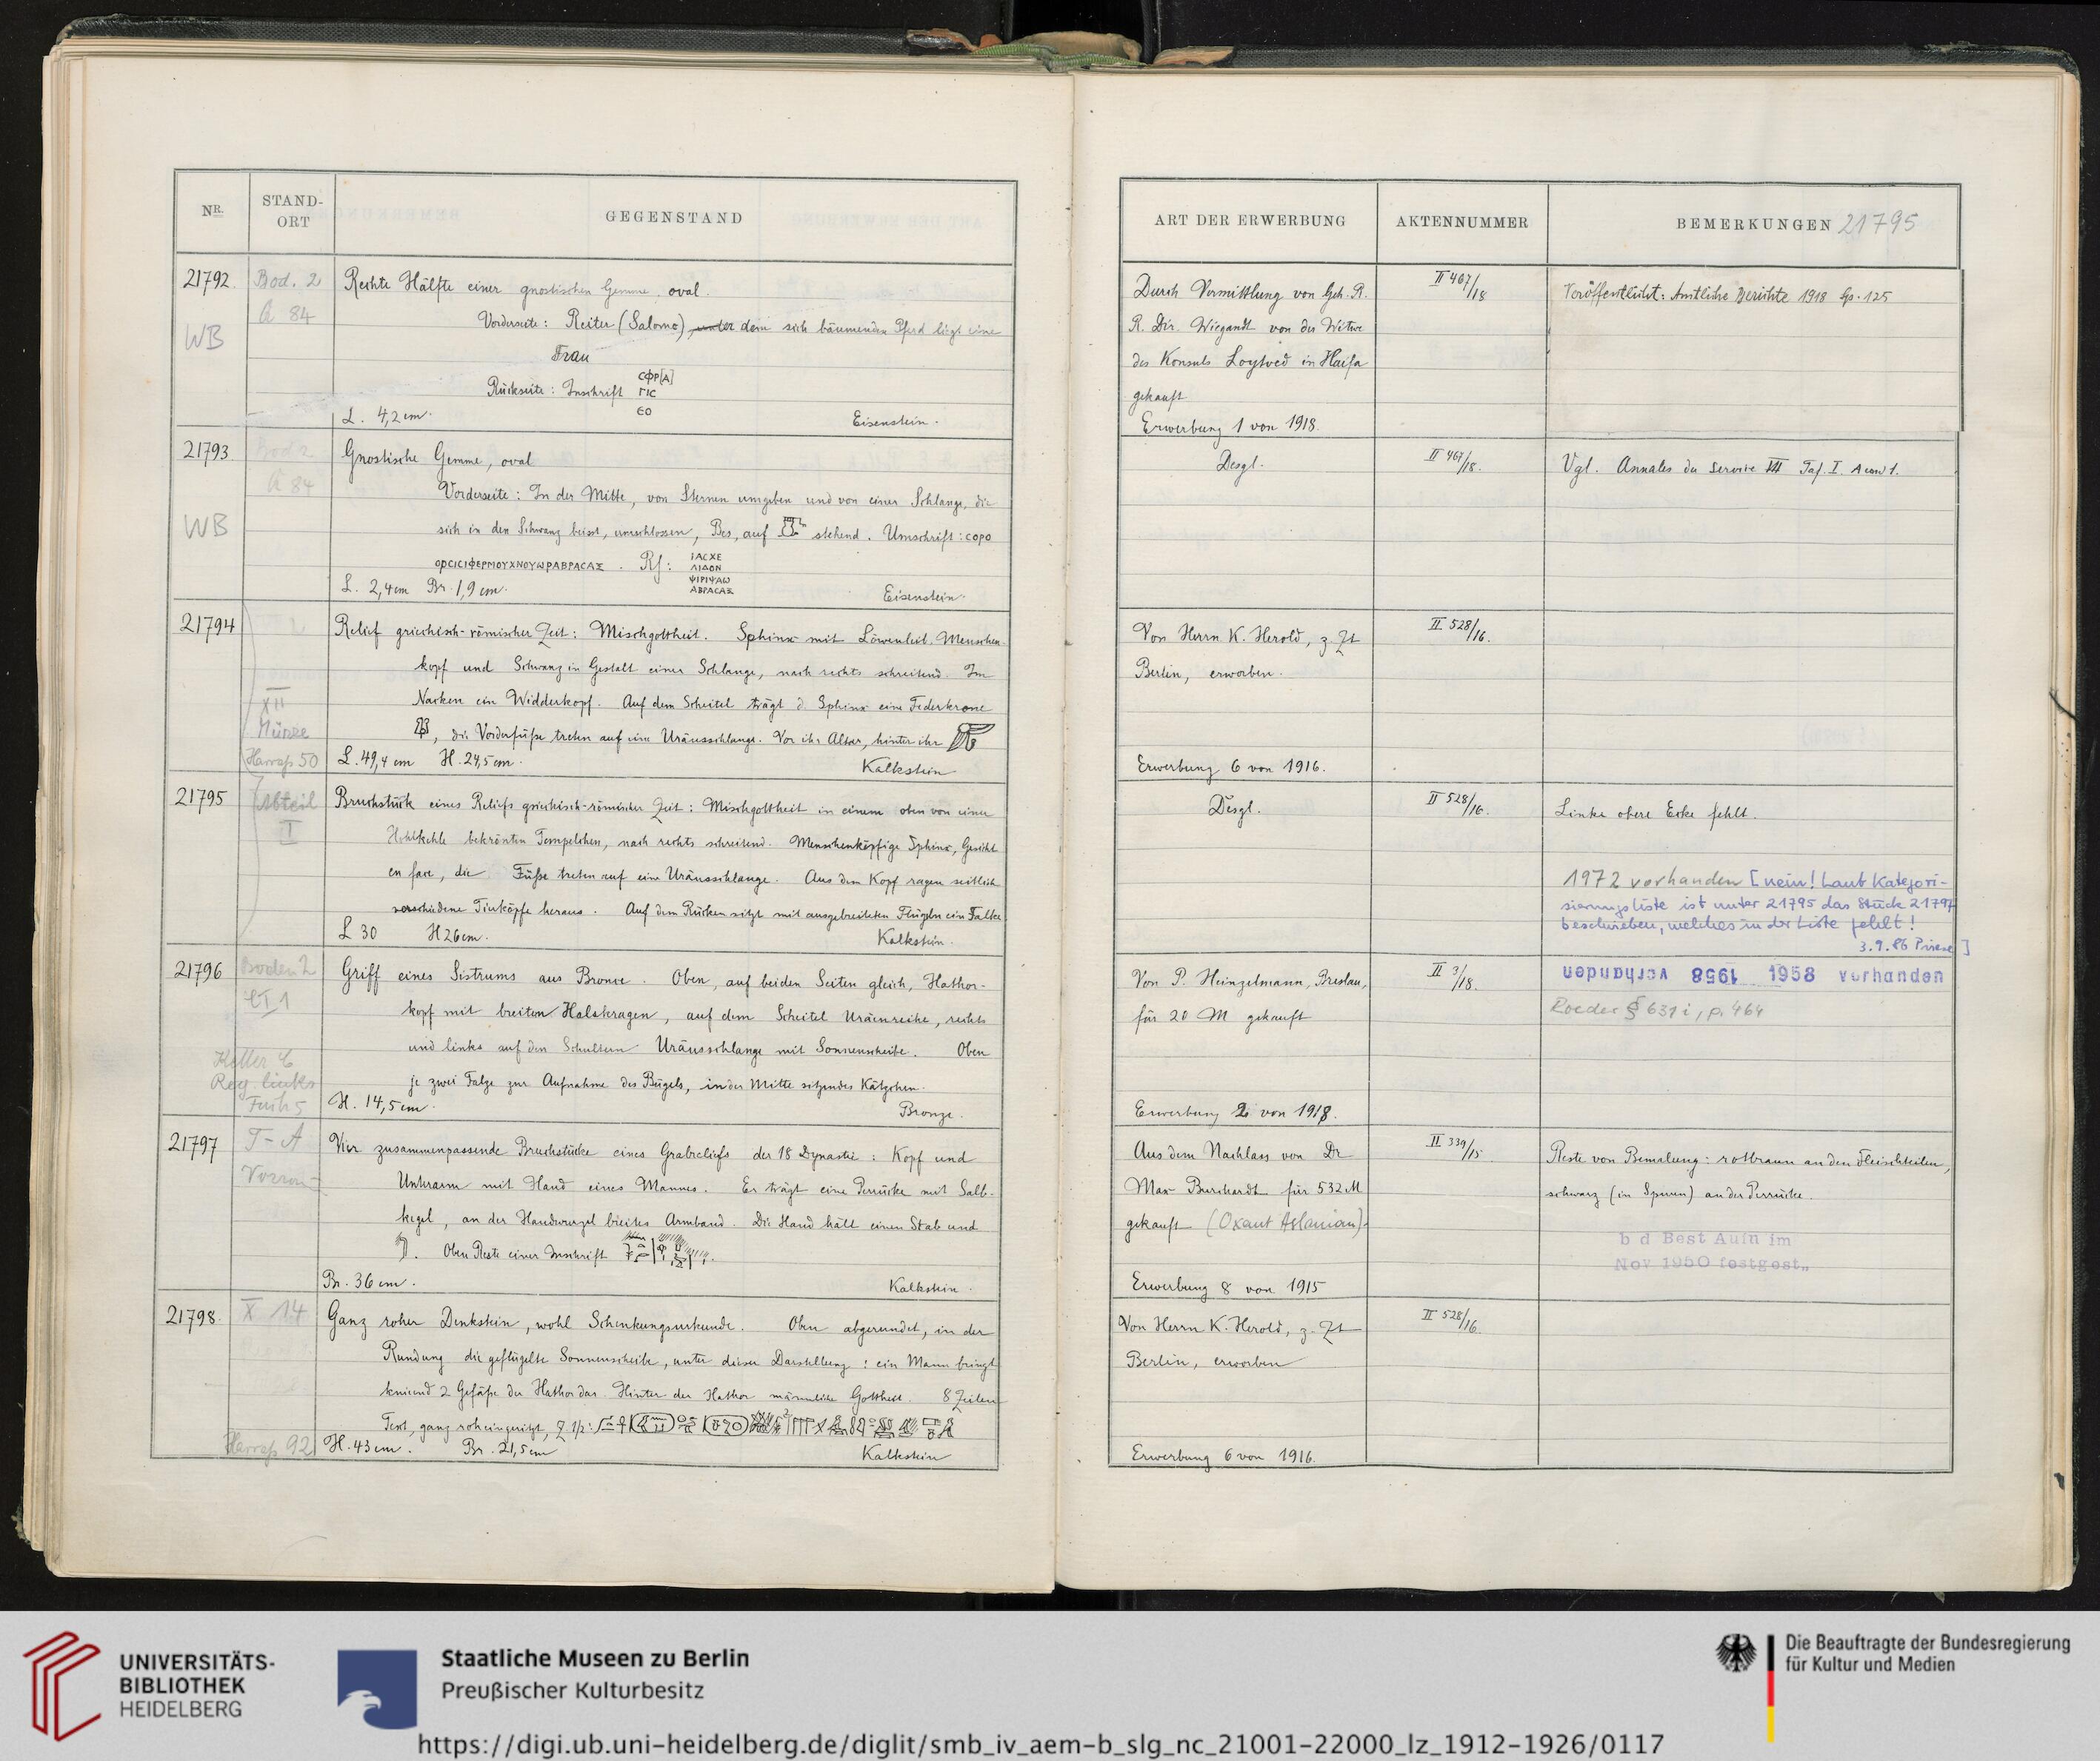 NR.
STAND-
ORT
GEGENSTAND
21792.
Bod. 2
A 84
WB
Rechte Hälfte einer gnostischen Gemme, oval.
Vorderseite: Reiter (Salomo), unter dem sich bäumenden Pferd liegt eine
Frau
Rückseite: Inschrift
CΦP[A]
ΓIC
ЄO
L. 4,2 cm.
Eisenstein.
21793
Bod 2
A 84
WB
Gnostische Gemme, oval
Vorderseite: In der Mitte, von Sternen umgeben und von einer Schlange, die
sich in den Schwanz beisst, umschlossen, Bes, auf stehend. Umschrift: COPO
OPCICIΦEPMOYXNOYWPABPACAΞ. Rs:
IACXE
ΛIΔON
ΨIPIΨAW
ABPACAΞ
L. 2,4 cm Br. 1,9 cm.
Eisenstein.
21794
XII
Münze
Harrap 50
Relief griechisch-römischer Zeit: Mischgottheit. Sphinx mit Löwenleib, Menschen-
kopf und Schwanz in Gestalt einer Schlange, nach rechts schreitend. Im
Nacken ein Widderkopf. Auf dem Scheitel trägt d. Sphinx eine Federkrone
, die Vorderfüße treten auf eine Uräusschlange. Vor ihr Altar, hinter ihr
L. 49,4 cm H. 24,5 cm.
Kalkstein
21795
Abteil
I
Bruchstück eines Reliefs griechisch-römischer Zeit: Mischgottheit in einem oben von einer
Hohlkehle bekrönten Tempelchen, nach rechts schreitend. Menschenköpfige Sphinx, Gesicht
en face, die Füße treten auf eine Uräusschlange. Aus dem Kopf ragen seitlich
verschiedene Tierköpfe heraus. Auf dem Rücken sitzt mit ausgebreiteten Flügeln ein Falke.
L 30 H 26 cm.
Kalkstein.
21796
Boden 2
CI 1
Keller C
Reg. links
Griff eines Sistrums aus Bronce. Oben, auf beiden Seiten gleich, Hathor-
kopf mit breitem Halskragen, auf dem Scheitel Uräenreihe, rechts
und links auf den Schultern Uräusschlange mit Sonnenscheibe. Oben
je zwei Falze zur Aufnahme des Bügels, in der Mitte sitzendes Kätzchen.
H. 14,5 cm.
Bronze.
21797
T-A
Vier zusammenpassende Bruchstücke eines Grabreliefs der 18 Dynastie: Kopf und
Unterarm mit Hand eines Mannes. Er trägt eine Perrücke mit Salb-
kegel, an der Handwurzel breites Armband. Die Hand hält einen Stab und
. Oben Reste einer Inschrift
Br. 36 cm.
Kalkstein.
21798.
X 14
Harrap 92
Ganz roher Denkstein, wohl Schenkungsurkunde. Oben abgerundet, in der
Rundung die geflügelte Sonnenscheibe, unter dieser Darstellung: ein Mann bringt
kniend 2 Gefäße der Hathor dar. Hinter der Hathor männliche Gottheit. 8 Zeilen
Text, ganz roh eingeritzt, Z. 1/2:
H. 43 cm. Br. 21,5 cm
Kalkstein
ART DER ERWERBUNG
AKTENNUMMER
BEMERKUNGEN 21795
Durch Vermittlung von Geh. R.
R. Dir. Wiegandt von der Witwe
des Konsuls Loytved in Haifa
gekauft
Erwerbung 1 von 1918.
II 467/18
Veröffentlicht: Amtliche Berichte 1918 Sp. 125
Desgl.
II 467/18.
Vgl. Annales du Service III Taf. I. A und 1.
Von Herrn K. Herold, z. Zt
Berlin, erworben.
Erwerbung 6 von 1916.
II 528/16.
Desgl.
II 528/16.
Linke obere Ecke fehlt.
1972 vorhanden [nein! Laut Kategori-
sierungsliste ist unter 21795 das Stück 21797
beschrieben, welches in der Liste fehlt!
3.9.86 Priese]
Von P. Heinzelmann, Breslau,
für 20 M gekauft
Erwerbung 2 von 1918.
II 3/18.
1958 vorhanden
1958 vorhanden
Roeder § 631 i, p. 464
Aus dem Nachlass von Dr
Max Burchardt für 532 M
gekauft (Oxant Aslanian).
Erwerbung 8 von 1915
II 339/15
Reste von Bemalung: rotbraun an den Fleischteilen,
schwarz (in Spuren) an der Perrücke.
b d Best Aufn im
Nov 1950 festgest.
Von Herrn K. Herold, z. Zt
Berlin, erworben
Erwerbung 6 von 1916.
II 528/16.
UNIVERSITÄTS-
BIBLIOTHEK
HEIDELBERG
Staatliche Museen zu Berlin
Preußischer Kulturbesitz
Die Beauftragte der Bundesregierung
für Kultur und Medien
https://digi.ub.uni-heidelberg.de/diglit/smb_iv_aem-b_slg_nc_21001-22000_lz_1912-1926/0117